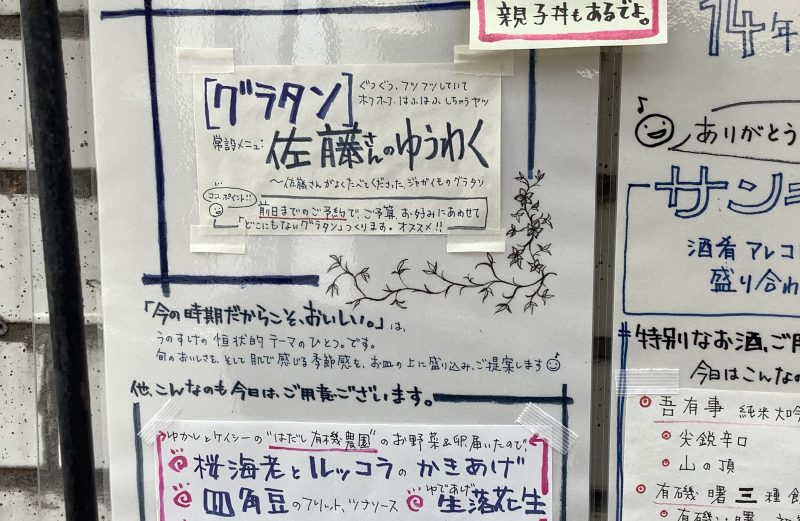 親子丼もあるでよ。
[グラタン]
ぐつぐつ、フツフツしていて
ホフホフ、はふはふ、しちゃうヤツ
常設メニュー:
佐藤さんのゆうわく
〜佐藤さんがよくたべてくださった、ジャガイものグラタン
ココ、ポイント!!
前日までのご予約で、ご予算、お好みにあわせて
「どこにもないグラタン」つくります。オススメ!!
「今の時期だからこそ、おいしい。」は、
うのすけの恒状的テーマのひとつ。です。
旬のおいしさを、そして肌で感じる季節感を、お皿の上に盛り込み、ご提案します
他、こんなのも今日は、ご用意ございます。
ゆかしとケイシーの"はだし有機農園"のお野菜&卵、届いたので、
桜海老とルッコラのかきあげ
四角豆のフリット、ツナソース
ゆであげ
生落花生
14年
ありがとう
サンキ
酒肴アレコ
盛り合わ
特別なお酒、ご用
今日はこんなの
吾有事 純米大吟
尖鋭辛口
山の頂
有磯曙 三種飲
有磯曙 初